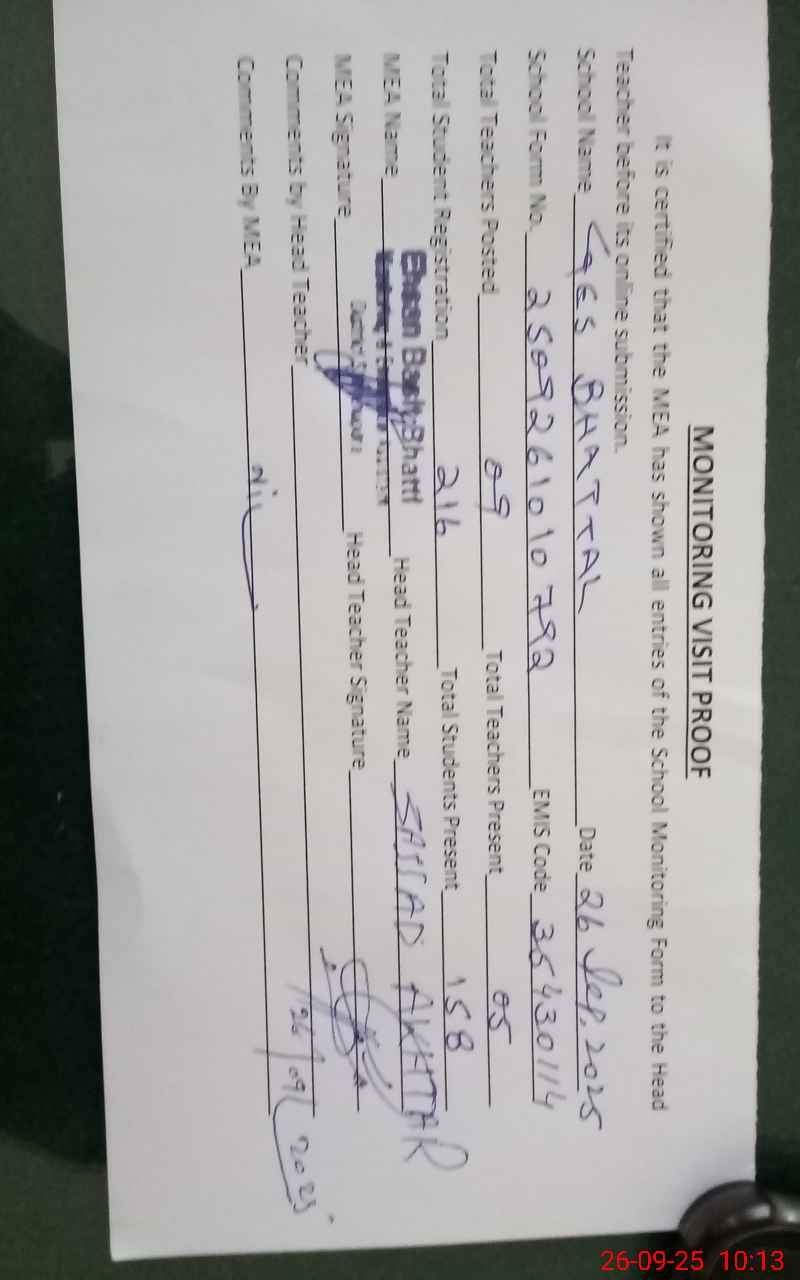 MONITORING VISIT PROOF
It is certified that the MEA has shown all entries of the School Monitoring Form to the Head
Teacher before its online submission.
School Name GES BHATTAL Date 26 Sep, 2025
School Form No. 2509261010792 EMIS Code 36430114
Total Teachers Posted 09 Total Teachers Present 05
Total Student Registration 216 Total Students Present 158
MEA Name Ehsan Bhatti Head Teacher Name SAJJAD AKHTAR
Monitoring &
District
MEA Signature Head Teacher Signature
Comments by Head Teacher 26/09/2025
Comments By MEA Nil
26-09-25 10:13